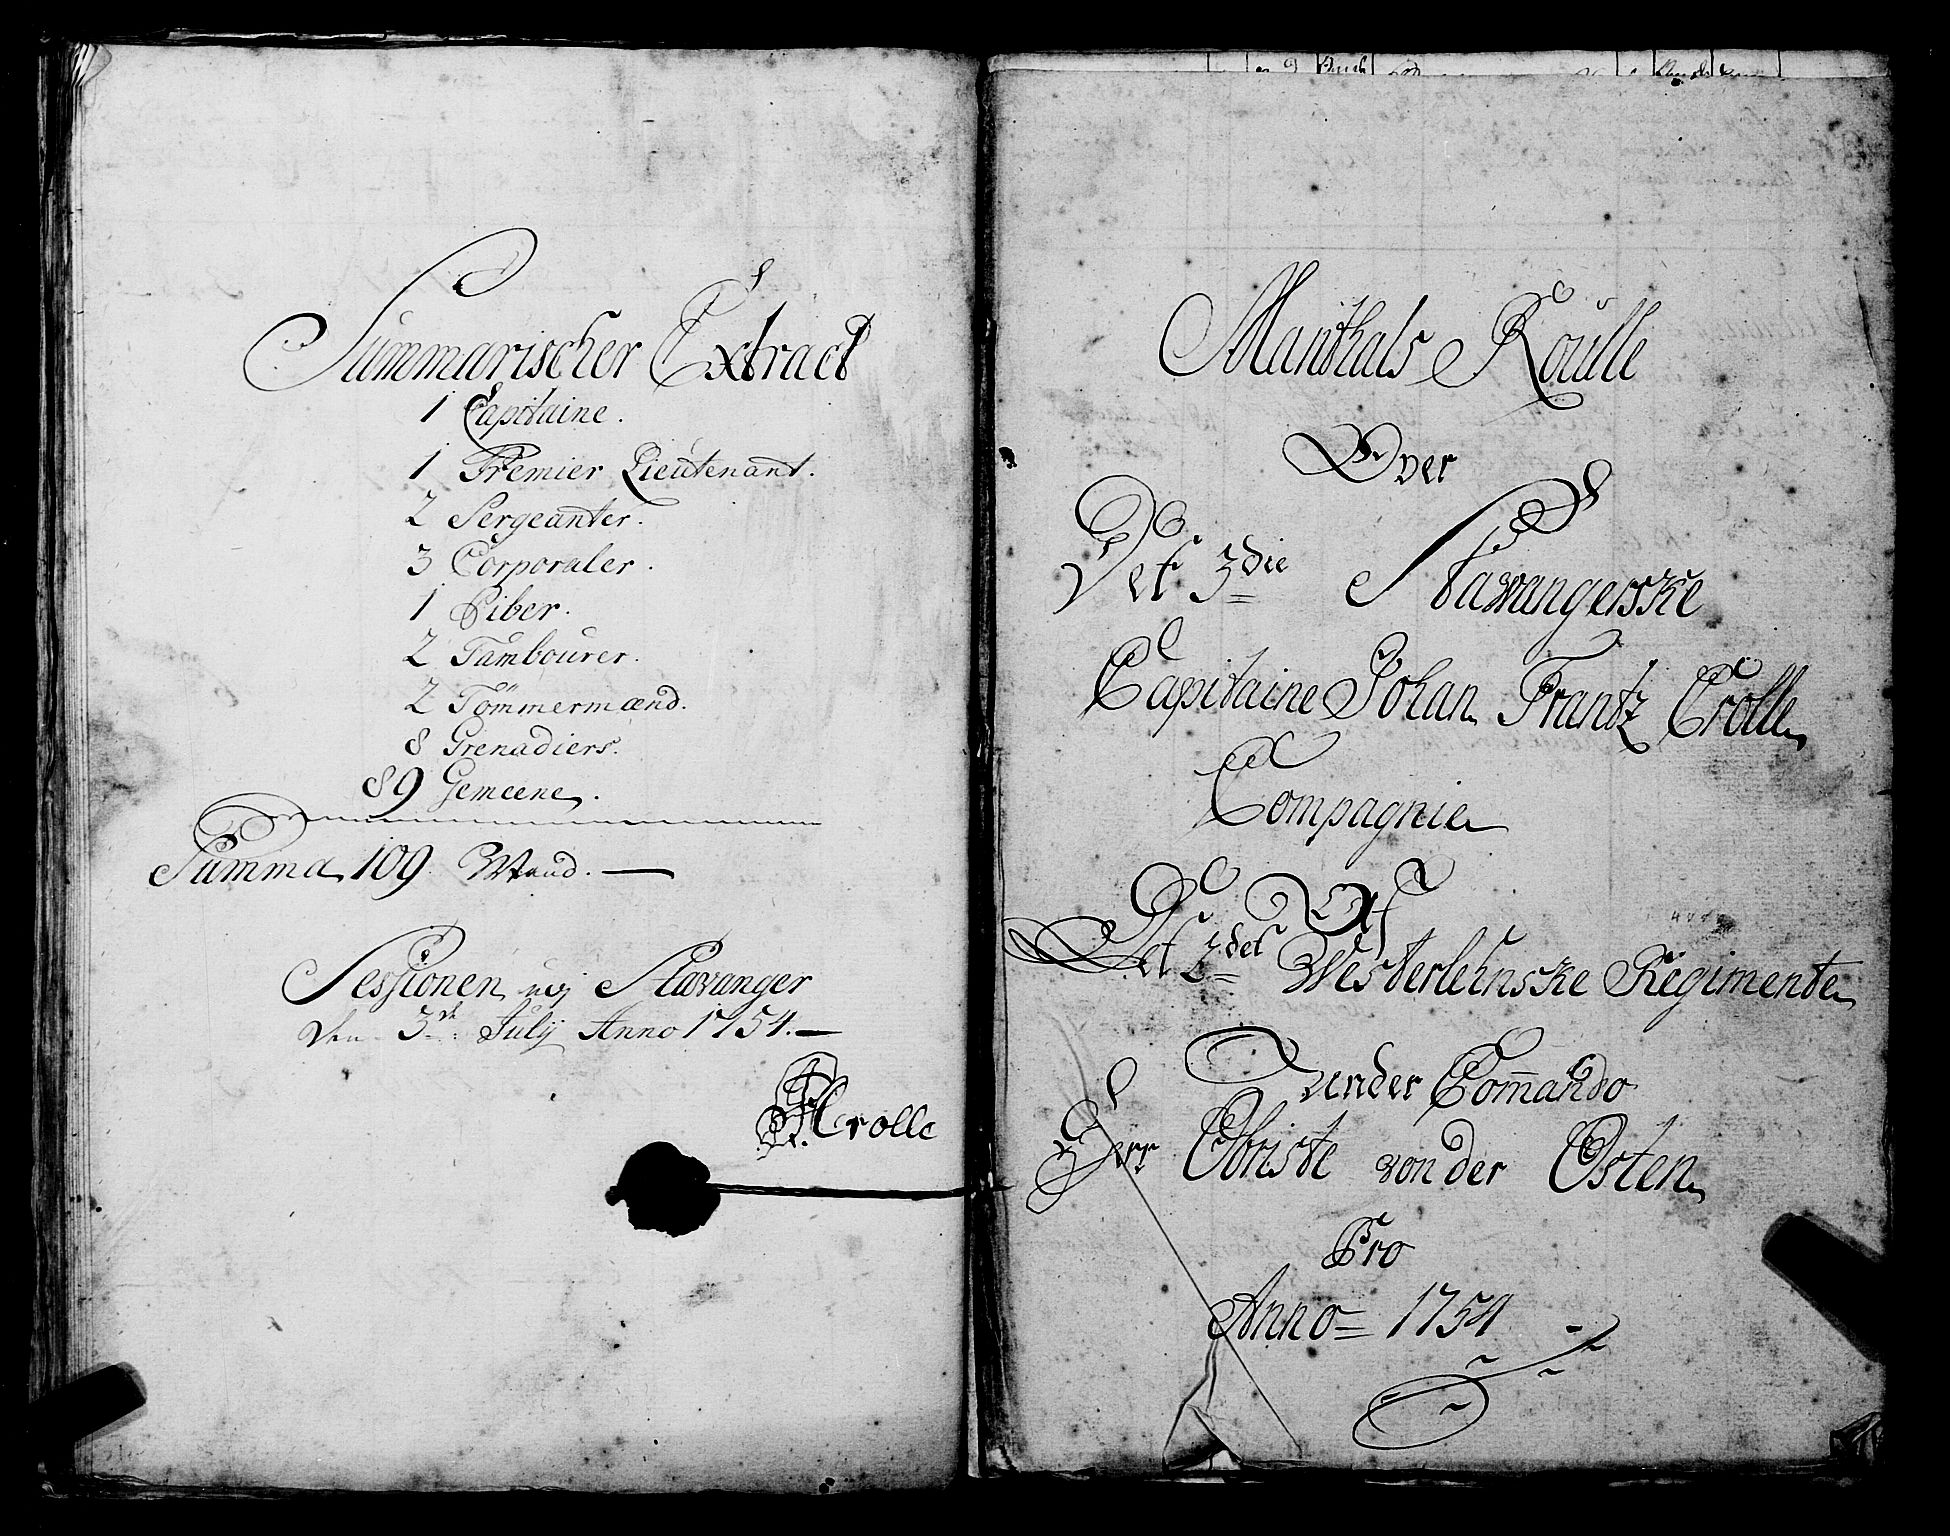 Summarischer Extract
1 Capitaine.
1 Premier Lieutenant.
2 Sergeanter.
3 Corporaler.
1 Piber.
2 Tambourer.
2 Tömmermænd.
8 Grenadiers.
89 Gemeene.
Summa 109. Mand.
Sessionen udj Stavanger
den 3de July Anno 1754.
Crolle
Manthals Roulle
Over
Det 3die Stavangerske
Capitaine Johan Frantz Crolle
Compagnie
Af
Det 2det Westerlehnske Regimente
under Commando
Herr Obriste von der Osten
Pro
Anno = 1754